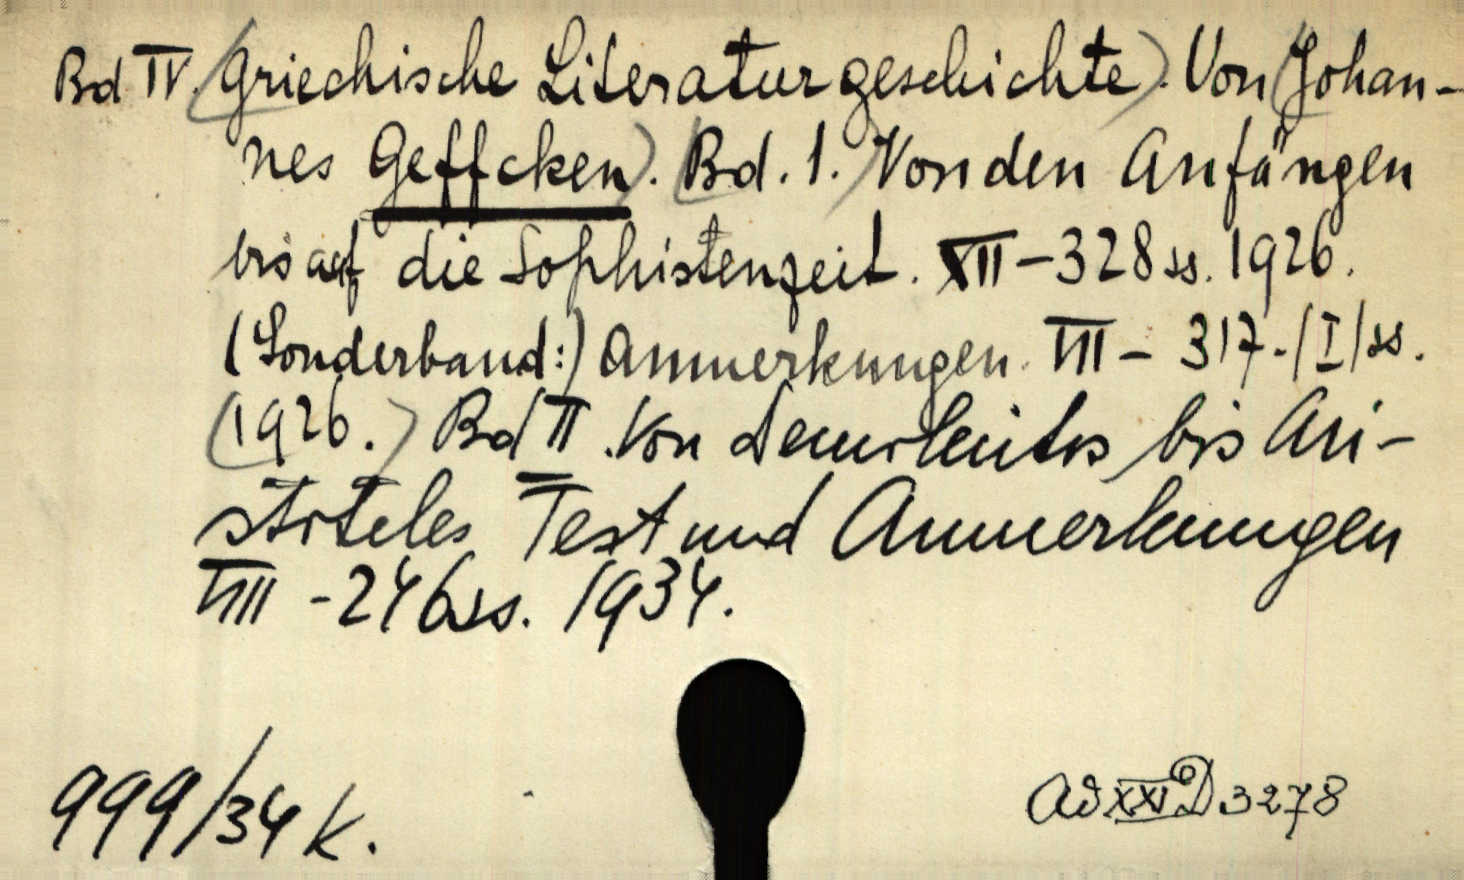 Bd IV. (Griechische Literaturgeschichte). Von (Johan-
nes Geffcken). (Bd. 1.) Von den Anfängen
bis auf die Sophistenzeit. XII – 328 ss. 1926.
(Sonderband:) Anmerkungen. VIII – 317 - /I/ ss.
(1926.) Bd II. Von Demokritos bis Ari-
stoteles Text und Anmerkungen
VIII - 246 ss. 1934.
999/34 K.
Ad XXI D 3278